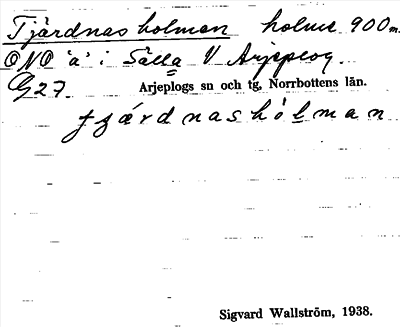 Tjärdnasholmen holme 900 m.
ONO "a" i Sälla V Arjeplog.
G27. Arjeplogs sn och tg, Norrbottens län.
tjärdnashólman
Sigvard Wallström, 1938.